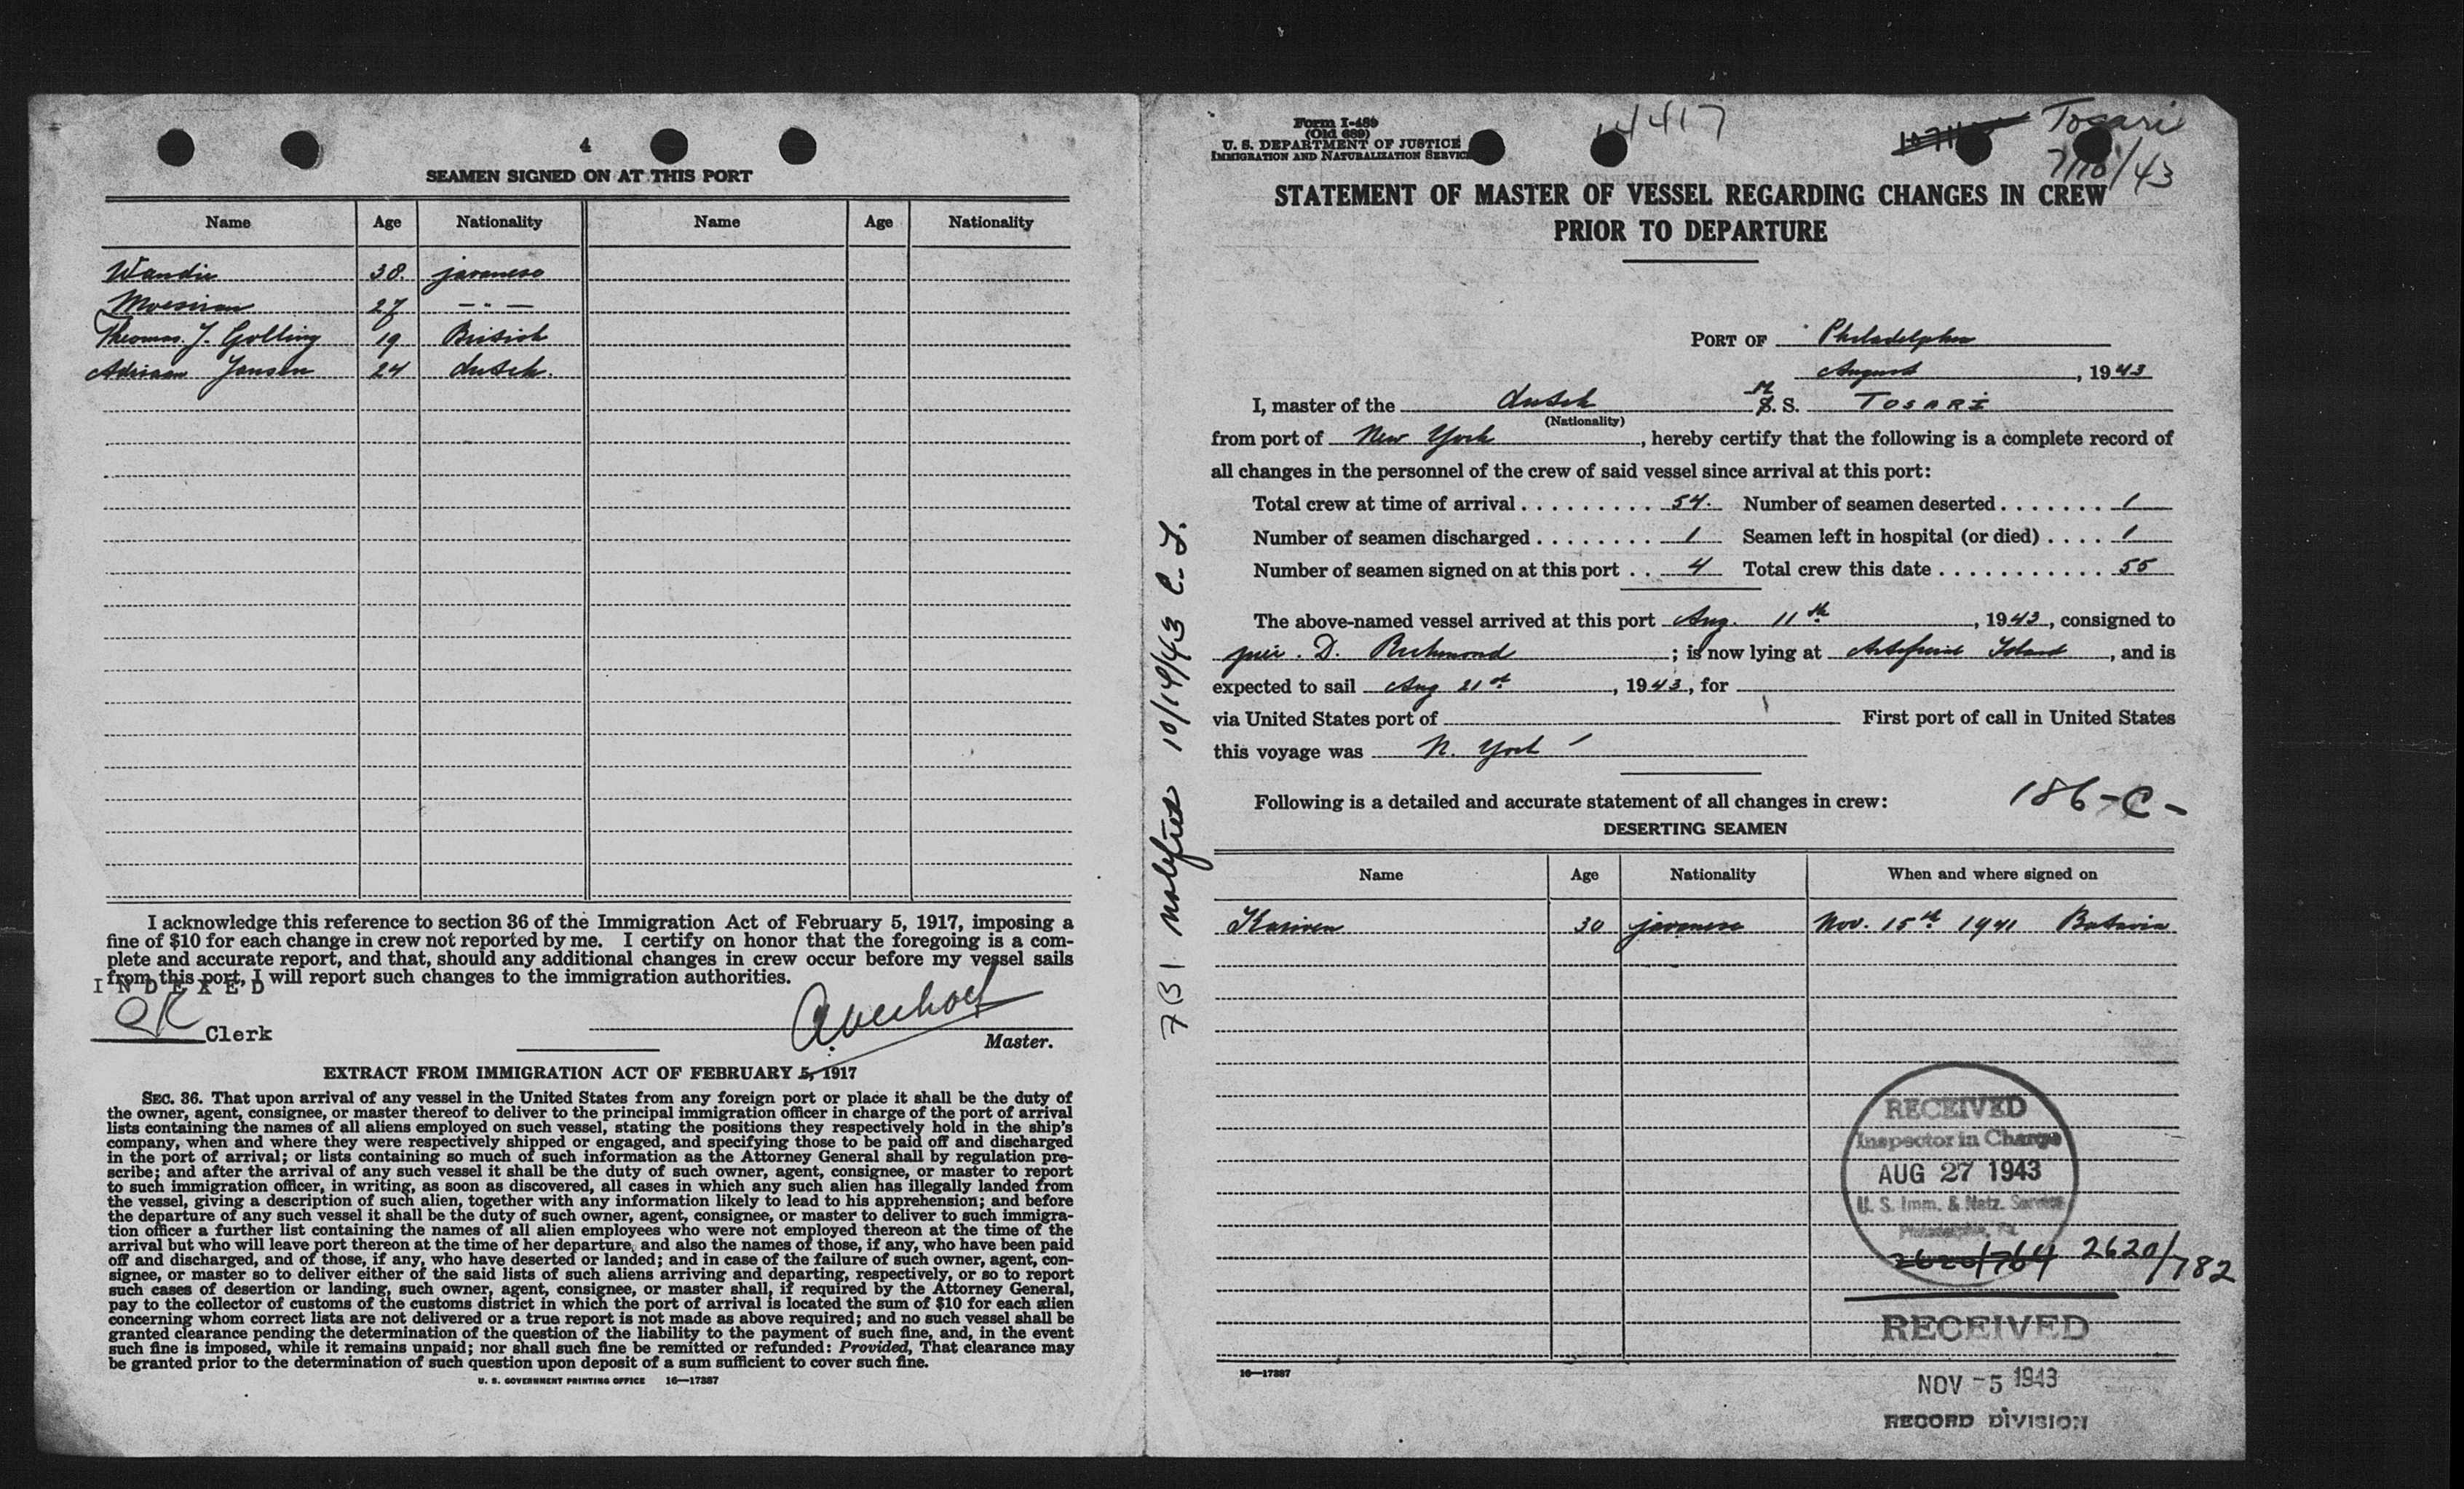 4
SEAMEN SIGNED ON AT THIS PORT
Name Age Nationality Name Age Nationality
Wandie 38. javanese
Moesiran 27 — " —
Thomas. J. Golling 19 British
Adriaan Jansen 24 dutch.
I acknowledge this reference to section 36 of the Immigration Act of February 5, 1917, imposing a
fine of $10 for each change in crew not reported by me. I certify on honor that the foregoing is a com-
plete and accurate report, and that, should any additional changes in crew occur before my vessel sails
from this port, I will report such changes to the immigration authorities.
INDEXED
OK Clerk
Master.
EXTRACT FROM IMMIGRATION ACT OF FEBRUARY 5, 1917
SEC. 36. That upon arrival of any vessel in the United States from any foreign port or place it shall be the duty of
the owner, agent, consignee, or master thereof to deliver to the principal immigration officer in charge of the port of arrival
lists containing the names of all aliens employed on such vessel, stating the positions they respectively hold in the ship's
company, when and where they were respectively shipped or engaged, and specifying those to be paid off and discharged
in the port of arrival; or lists containing so much of such information as the Attorney General shall by regulation pre-
scribe; and after the arrival of any such vessel it shall be the duty of such owner, agent, consignee, or master to report
to such immigration officer, in writing, as soon as discovered, all cases in which any such alien has illegally landed from
the vessel, giving a description of such alien, together with any information likely to lead to his apprehension; and before
the departure of any such vessel it shall be the duty of such owner, agent, consignee, or master to deliver to such immigra-
tion officer a further list containing the names of all alien employees who were not employed thereon at the time of the
arrival but who will leave port thereon at the time of her departure, and also the names of those, if any, who have been paid
off and discharged, and of those, if any, who have deserted or landed; and in case of the failure of such owner, agent, con-
signee, or master so to deliver either of the said lists of such aliens arriving and departing, respectively, or so to report
such cases of desertion or landing, such owner, agent, consignee, or master shall, if required by the Attorney General,
pay to the collector of customs of the customs district in which the port of arrival is located the sum of $10 for each alien
concerning whom correct lists are not delivered or a true report is not made as above required; and no such vessel shall be
granted clearance pending the determination of the question of the liability to the payment of such fine, and, in the event
such fine is imposed, while it remains unpaid; nor shall such fine be remitted or refunded: Provided, That clearance may
be granted prior to the determination of such question upon deposit of a sum sufficient to cover such fine.
U. S. GOVERNMENT PRINTING OFFICE 16—17387
7B1 notified 10/14/43 C. L.
Form I-489
(Old 689)
U. S. DEPARTMENT OF JUSTICE
IMMIGRATION AND NATURALIZATION SERVICE
14417
Tosari
7/10/43
STATEMENT OF MASTER OF VESSEL REGARDING CHANGES IN CREW
PRIOR TO DEPARTURE
PORT OF Philadelphia
August, 1943
I, master of the dutch M S. S. TOSARI
(Nationality)
from port of New York, hereby certify that the following is a complete record of
all changes in the personnel of the crew of said vessel since arrival at this port:
Total crew at time of arrival . . . . . . . . . 54. Number of seamen deserted . . . . . . . 1
Number of seamen discharged . . . . . . . . 1 Seamen left in hospital (or died) . . . . 1
Number of seamen signed on at this port . . 4 Total crew this date . . . . . . . . . . . 55
The above-named vessel arrived at this port Aug. 11th, 1943, consigned to
pier. D. Richmond; is now lying at Artificial Island, and is
expected to sail Aug 21st, 1943, for
via United States port of First port of call in United States
this voyage was N. York
Following is a detailed and accurate statement of all changes in crew:
186-C-
DESERTING SEAMEN
Name Age Nationality When and where signed on
Kariven 30 javanese Nov. 15th 1941 Batavia
RECEIVED
Inspector in Charge
AUG 27 1943
U. S. Imm. & Natz. Service
Philadelphia, Pa.
2620/764 2620/782
RECEIVED
NOV -5 1943
RECORD DIVISION
16—17387